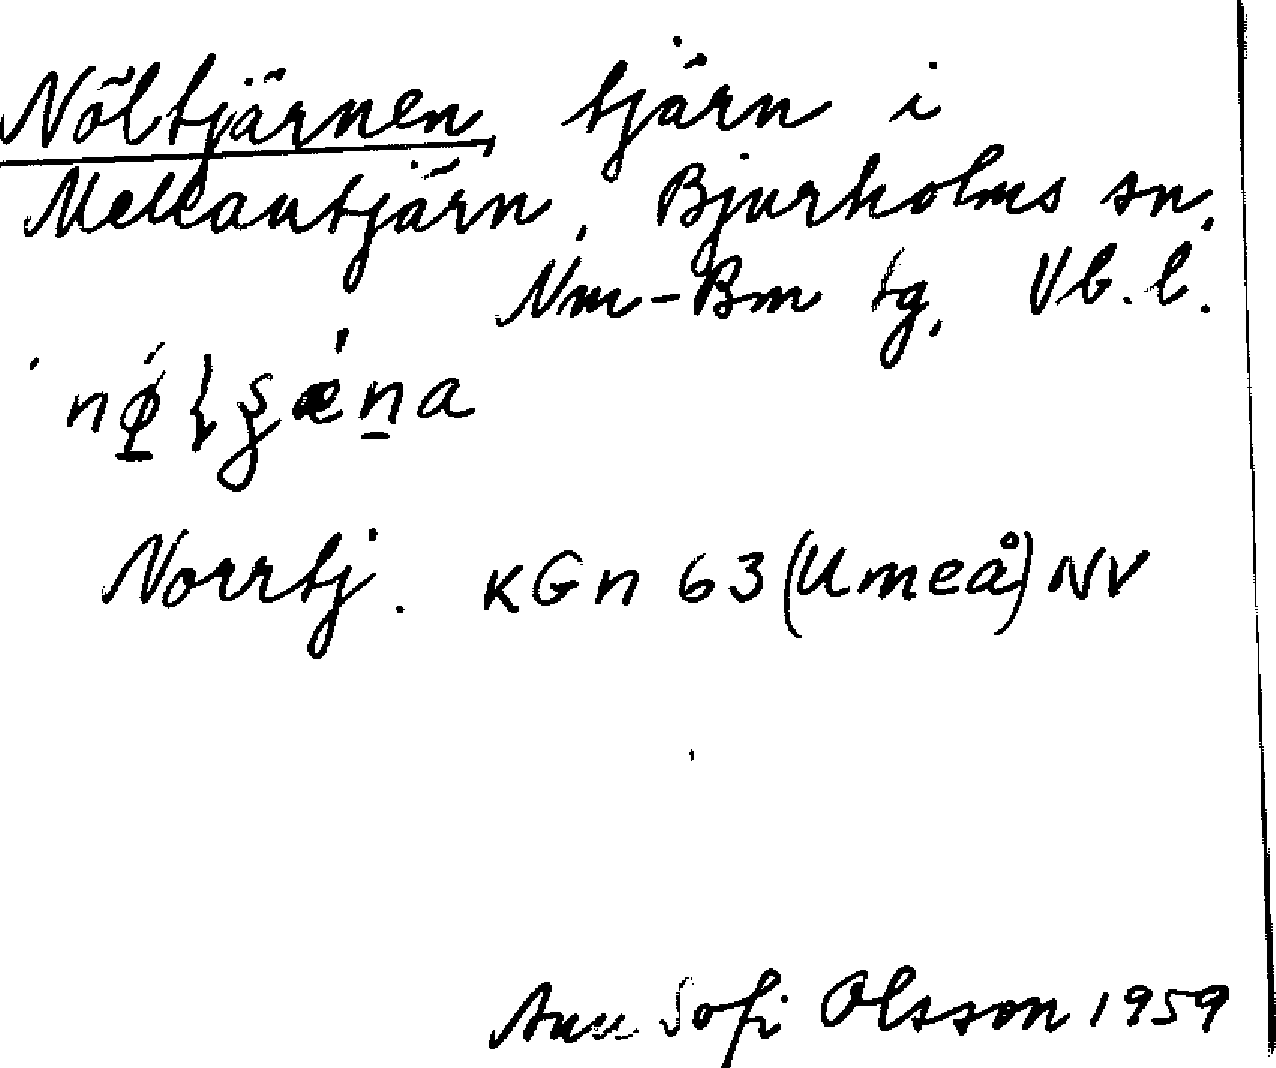 Nöltjärnen, tjärn i
Mellantjärn, Bjurholms sn,
Nm-Bm tg, Vb. l.
Norrtj. KGn 63 (Umeå) NV
Ann Sofi Olsson 1959